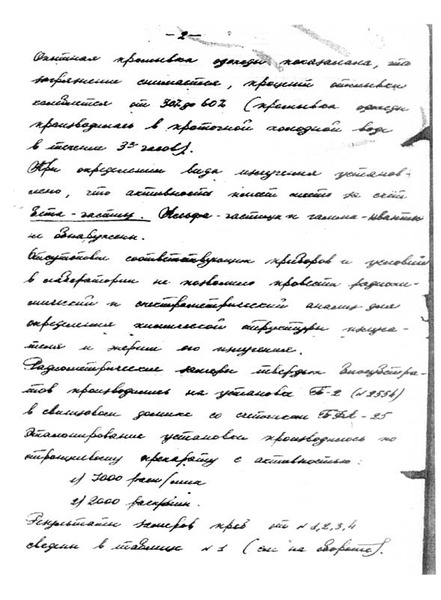 - 2 -
Опытная промывка одежды показала, что
загрязнение снимается, процент отмывки
колеблется от 30% до 60% (промывка одежды
производилась в проточной холодной воде
в течение 3х часов).
При определении вида излучения установ-
лено, что активность имеет место за счет
бета-частиц. Альфа-частиц и гамма-квантов
не обнаружено.
Отсутствие соответствующих приборов и условий
в лаборатории не позволило провести радиохи-
мический и спектрометрический анализ для
определения химической структуры излуча-
теля и энергии его излучения.
Радиометрические замеры твердых биосубстра-
тов производились на установке Б-2 (№ 2554)
в свинцовом домике со счетчиком БФЛ-25
Эталонирование установки производилось по
стронциевому препарату с активностью:
1) 1000 расп/мин
2) 2000 расп/мин.
Результаты замеров проб от № 1,2,3,4
сведены в таблицу № 1 (см на обороте).